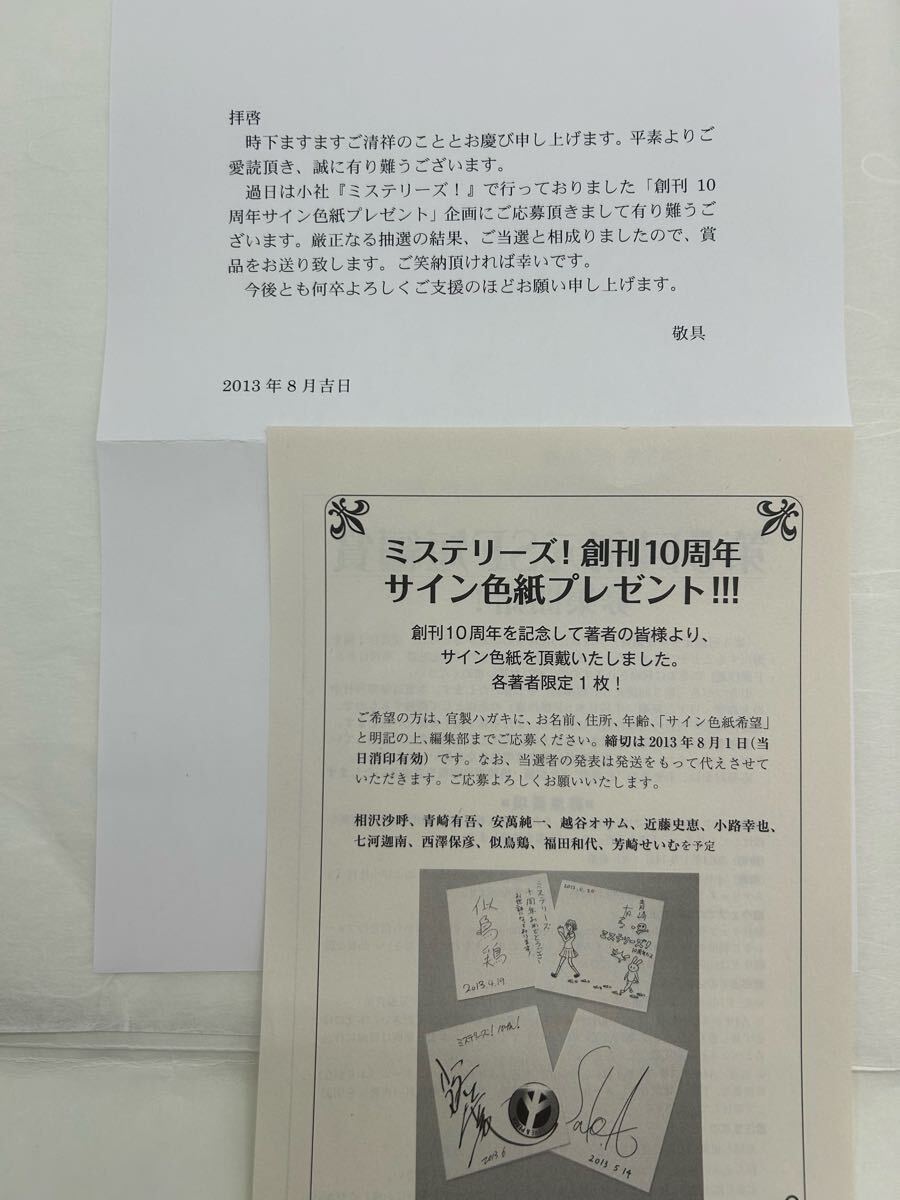 拝啓
時下ますますご清祥のこととお慶び申し上げます。平素よりご
愛読頂き、誠に有り難うございます。
過日は小社『ミステリーズ！』で行っておりました「創刊 10
周年サイン色紙プレゼント」企画にご応募頂きまして有り難うご
ざいます。厳正なる抽選の結果、ご当選と相成りましたので、賞
品をお送り致します。ご笑納頂ければ幸いです。
今後とも何卒よろしくご支援のほどお願い申し上げます。
敬具
2013 年 8 月吉日
ミステリーズ！創刊10周年
サイン色紙プレゼント!!!
創刊10周年を記念して著者の皆様より、
サイン色紙を頂戴いたしました。
各著者限定1枚！
ご希望の方は、官製ハガキに、お名前、住所、年齢、「サイン色紙希望」
と明記の上、編集部までご応募ください。締切は2013年8月1日（当
日消印有効）です。なお、当選者の発表は発送をもって代えさせて
いただきます。ご応募よろしくお願いいたします。
相沢沙呼、青崎有吾、安萬純一、越谷オサム、近藤史恵、小路幸也、
七河迦南、西澤保彦、似鳥鶏、福田和代、芳崎せいむを予定
ミステリーズ
十周年おめでとうござい
似鳥鶏
2013.4.19
2013.6.20
青崎
有吾
ミステリーズ！
ミステリーズ！10th！
2013.6
2013 5 14